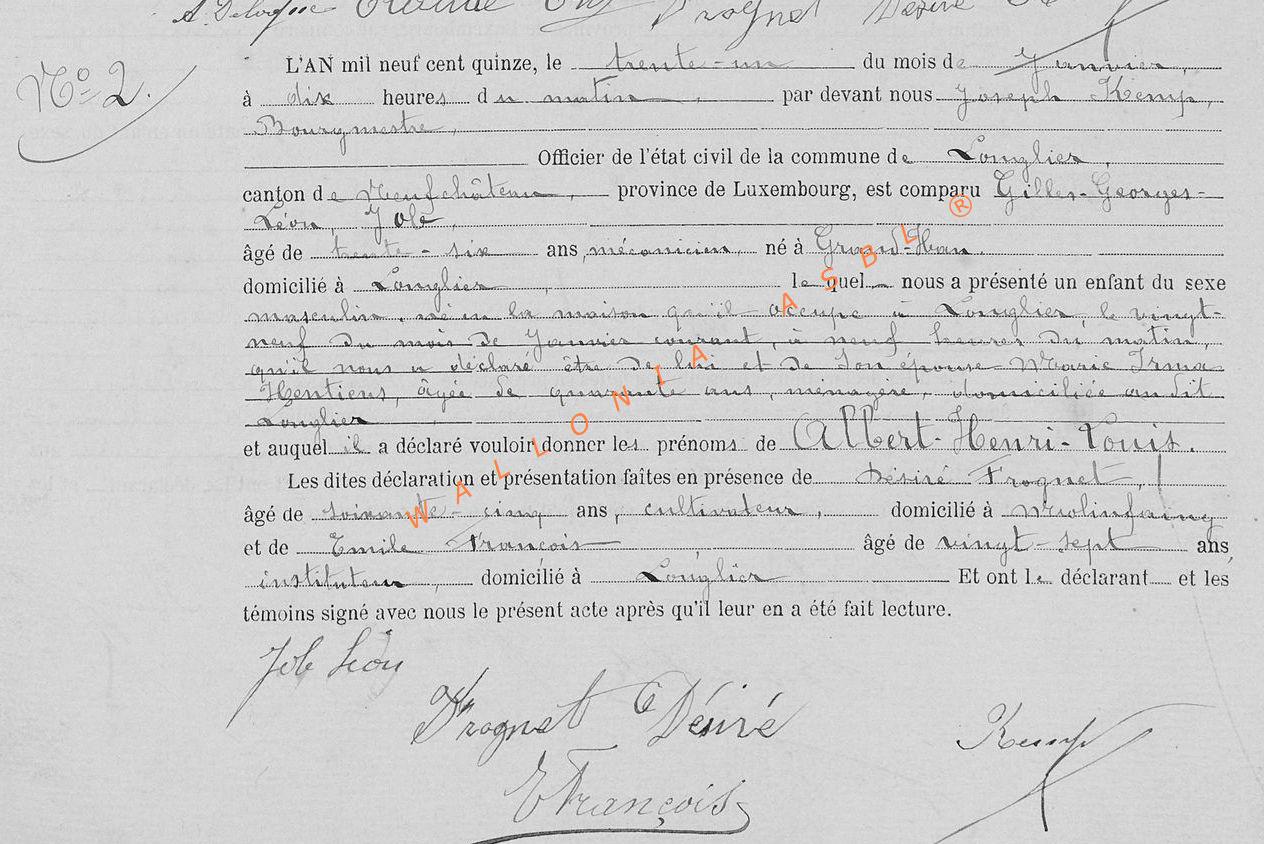 Prognet Désiré
N° 2.
L'AN mil neuf cent quinze, le trente-un du mois de Janvier,
à dix heures du matin, par devant nous Joseph Kemp,
Bourgmestre,
Officier de l'état civil de la commune de Longlier,
canton de Neufchâteau, province de Luxembourg, est comparu Gilles-Georges-
Léon, Job
âgé de trente-six ans, mécanicien, né à Grand-Han.
domicilié à Longlier, lequel nous a présenté un enfant du sexe
masculin, né en la maison qu'il occupe à Longlier, le vingt-
neuf du mois de Janvier courant, à neuf heures du matin,
qu'il nous a déclaré être de lui et de son épouse Marie Irma
Hentiens, âgée de quarante ans, ménagère, domiciliée audit
Longlier
et auquel il a déclaré vouloir donner les prénoms de Albert-Henri-Louis.
Les dites déclaration et présentation faites en présence de Désiré Frognet,
âgé de soixante-cinq ans, cultivateur, domicilié à Molinfaing
et de Emile François âgé de vingt-sept ans,
instituteur, domicilié à Longlier Et ont le déclarant et les
témoins signé avec nous le présent acte après qu'il leur en a été fait lecture.
Job Léon
Frognet Désiré
E François
Kemp
WALLONIA ASBL ®